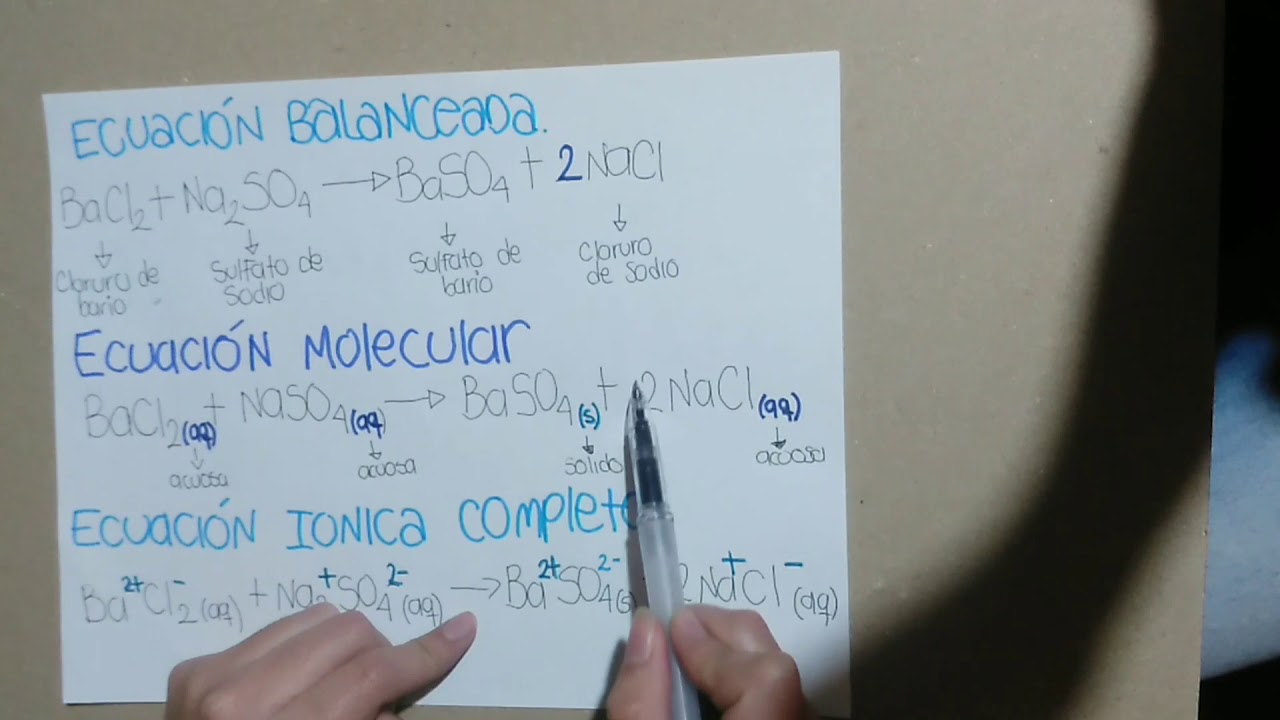 ECUACIÓN BALANCEADA.
BaCl₂ + Na₂SO₄ → BaSO₄ + 2NaCl
↓ ↓ ↓ ↓
Cloruro de bario Sulfato de Sodio Sulfato de bario Cloruro de sodio
ECUACIÓN MOLECULAR
BaCl₂(aq) + NaSO₄(aq) → BaSO₄(s) + 2NaCl(aq)
↓ ↓ ↓ ↓
acuosa acuosa solido acuosa
ECUACIÓN IONICA COMPLETA
Ba²⁺Cl⁻₂(aq) + Na₂⁺SO₄²⁻(aq) → Ba²⁺SO₄²⁻(s) 2Na⁺Cl⁻(aq)